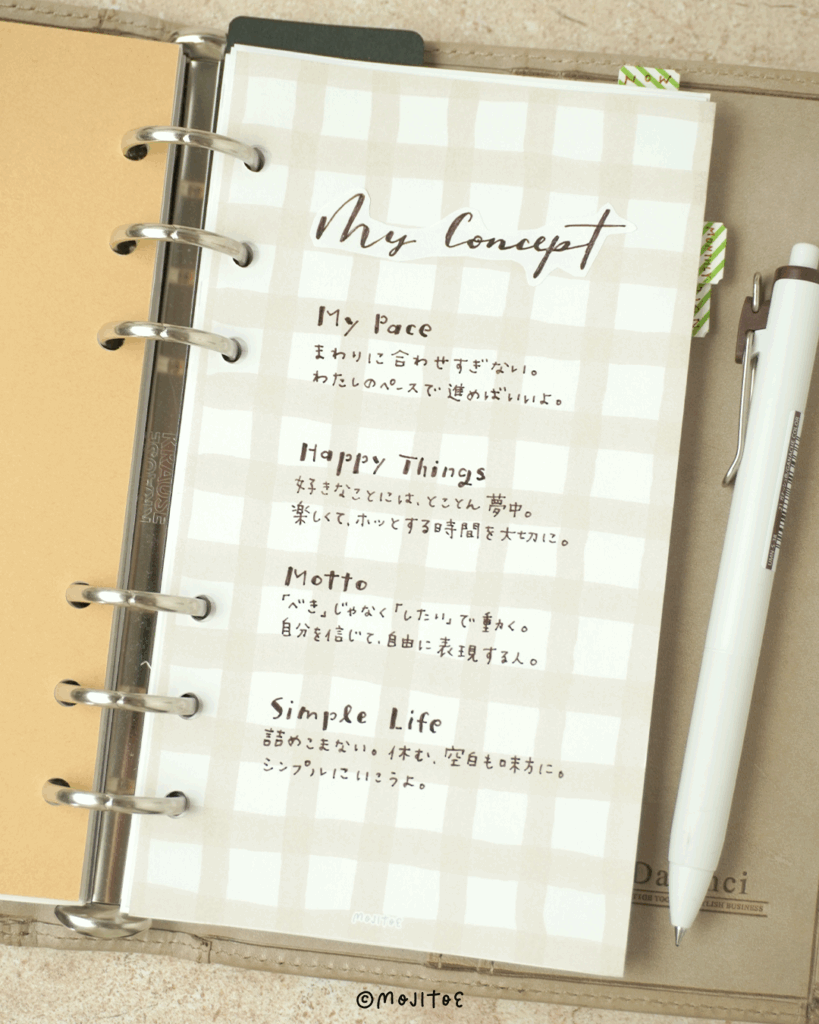 NOW
My Concept
My Pace
まわりに合わせすぎない。
わたしのペースで進めばいいよ。
Happy Things
好きなことには、とことん夢中。
楽しくて、ホッとする時間を大切に。
Motto
「べき」じゃなく「したい」で動く。
自分を信じて、自由に表現する人。
Simple Life
詰めこまない。休む、空白も味方に。
シンプルにいこうよ。
MOJITOE
KRAUSE
©MOJITOE